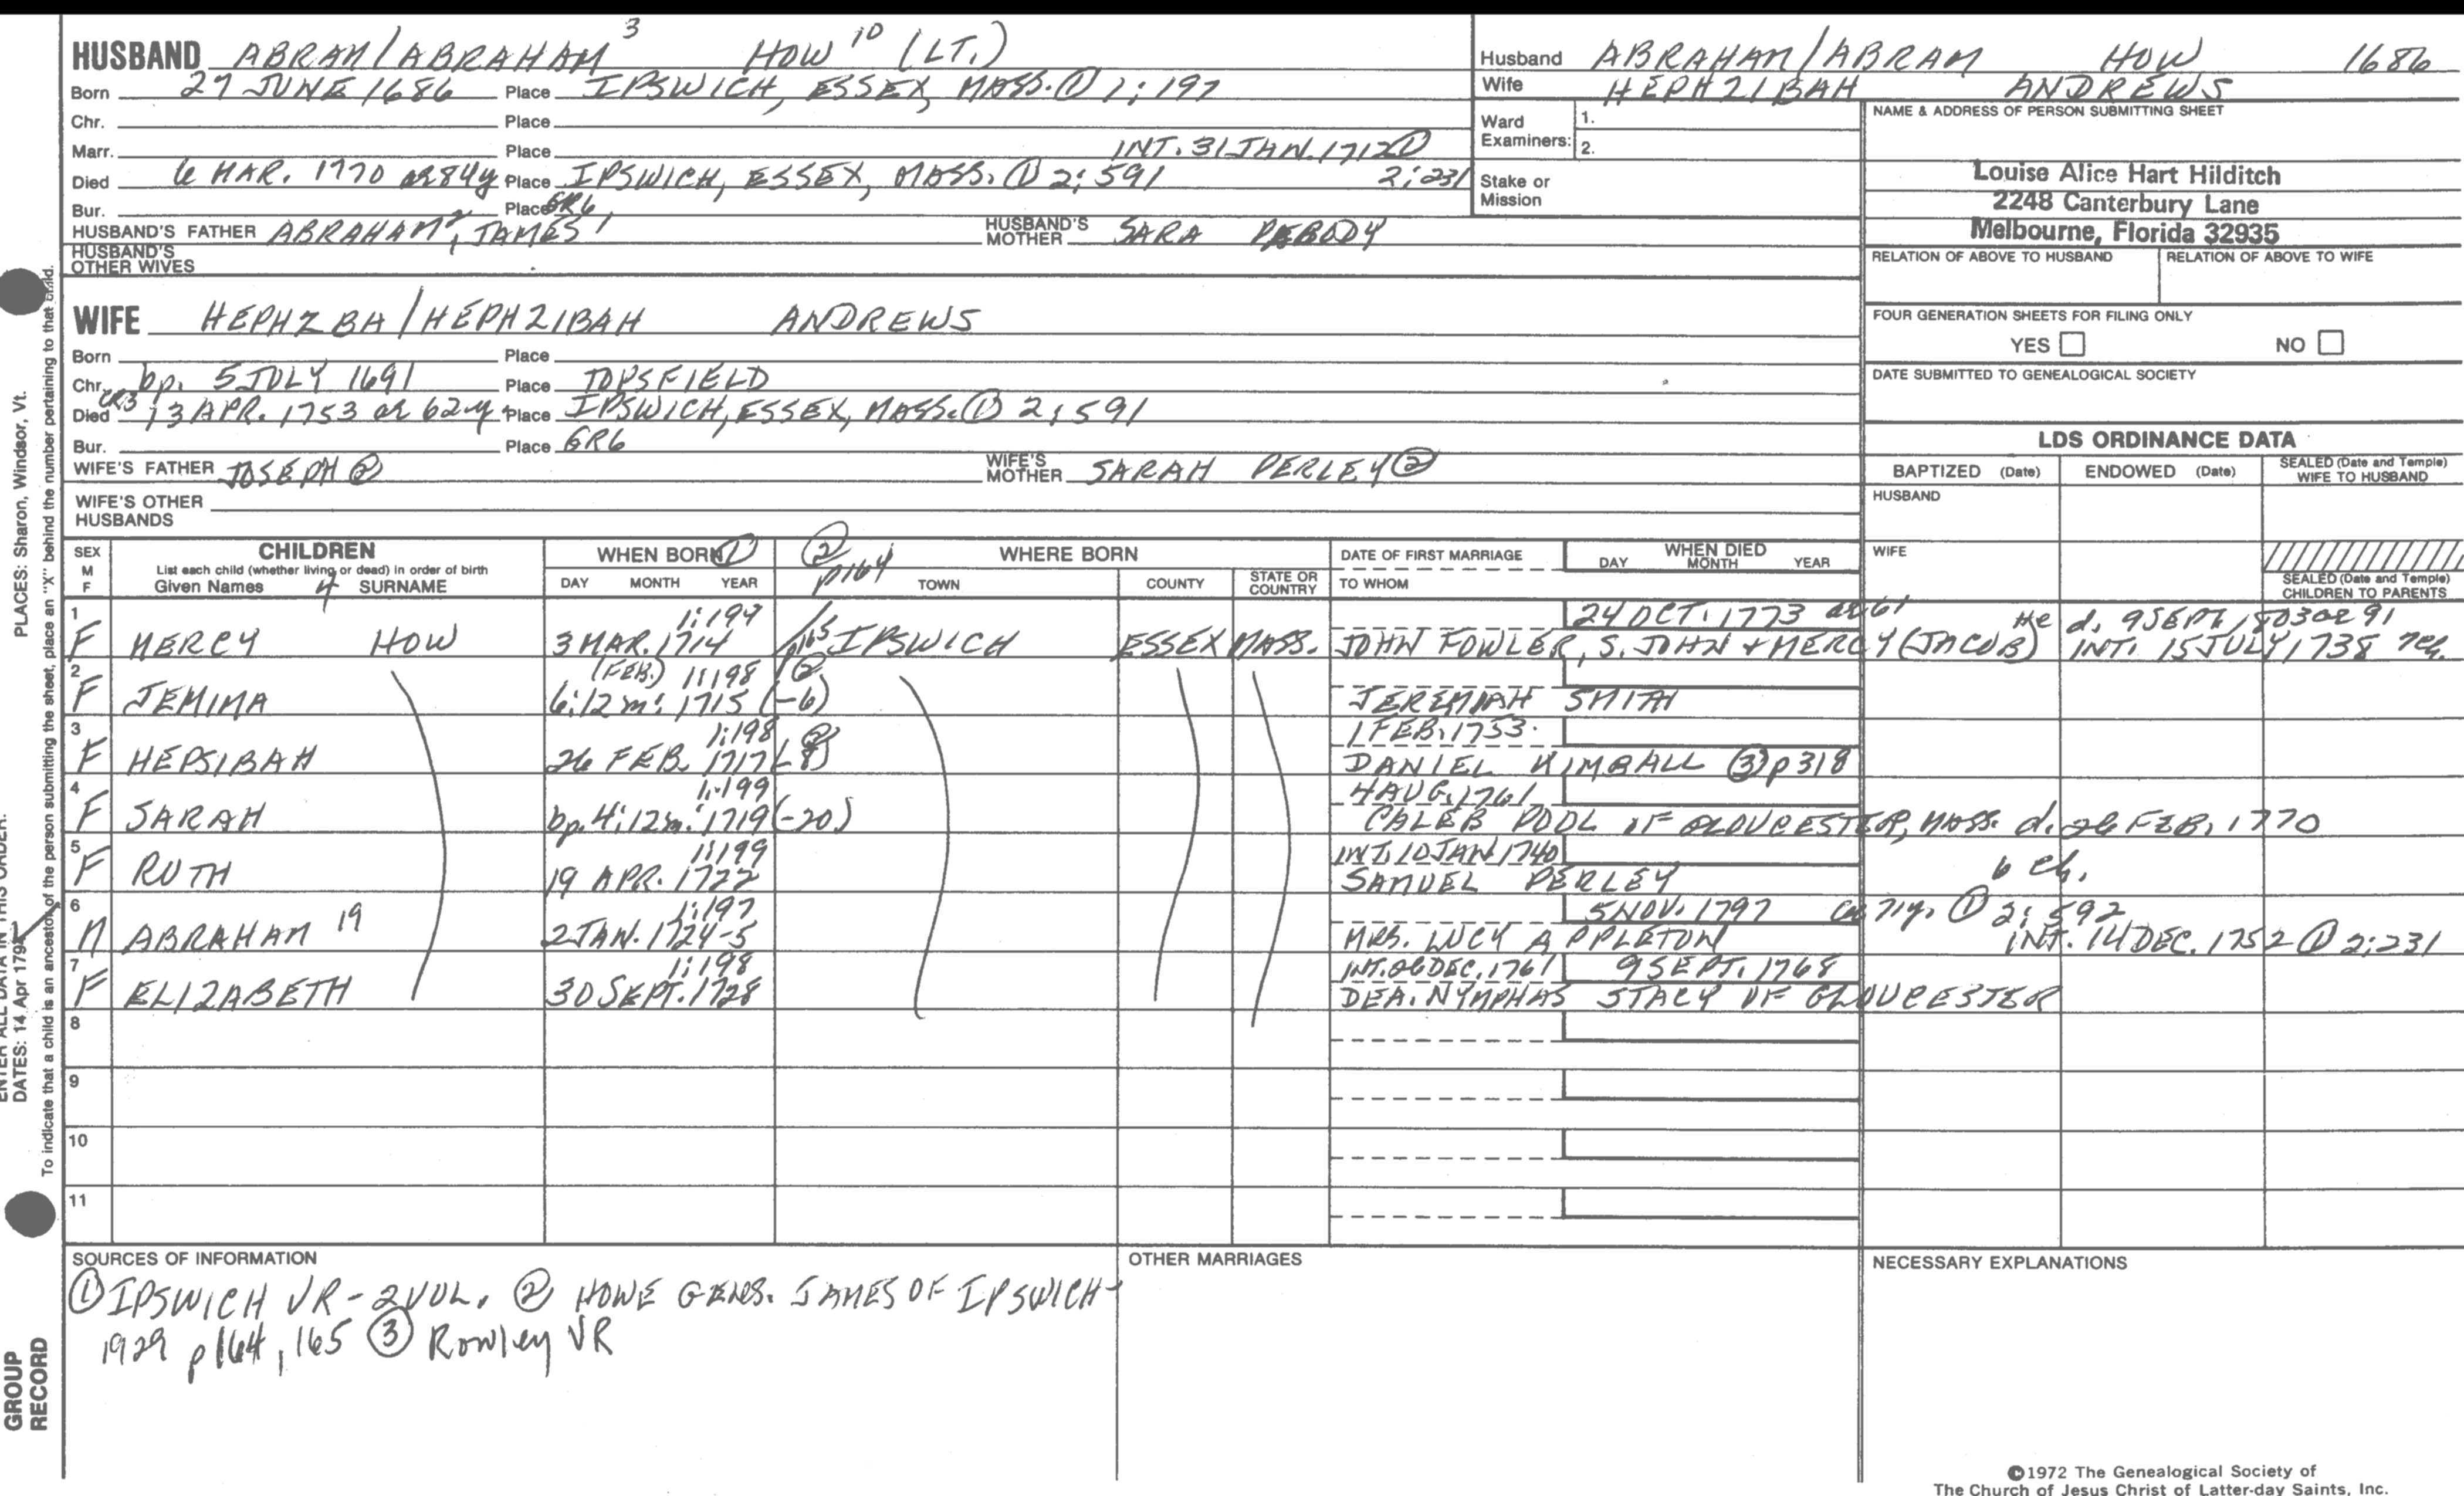 HUSBAND ABRAM/ABRAHAM 3 HOW 10 (LT.)
Born 27 JUNE 1686 Place IPSWICH, ESSEX, MASS. ① 1:197
Chr. Place
Marr. Place INT. 31 JAN. 1712 ①
2:231
Died 6 MAR. 1770 ae 84y Place IPSWICH, ESSEX, MASS. ① 2:591
Bur. Place GR6
HUSBAND'S FATHER ABRAHAM 2, JAMES 1 HUSBAND'S MOTHER SARA PEBODY
HUSBAND'S OTHER WIVES
WIFE HEPHZBH/HEPHZIBAH ANDREWS
Born Place
Chr. bp. 5 JULY 1691 Place TOPSFIELD
CR3
Died 13 APR. 1753 ae 62y Place IPSWICH, ESSEX, MASS. ① 2:591
Bur. Place GR6
WIFE'S FATHER JOSEPH ② WIFE'S MOTHER SARAH PERLEY ②
WIFE'S OTHER HUSBANDS
Husband ABRAHAM/ABRAM HOW 1686
Wife HEPHZIBAH ANDREWS
Ward Examiners: 1.
2.
Stake or Mission
NAME & ADDRESS OF PERSON SUBMITTING SHEET
Louise Alice Hart Hilditch
2248 Canterbury Lane
Melbourne, Florida 32935
RELATION OF ABOVE TO HUSBAND RELATION OF ABOVE TO WIFE
FOUR GENERATION SHEETS FOR FILING ONLY
YES NO
DATE SUBMITTED TO GENEALOGICAL SOCIETY
LDS ORDINANCE DATA
BAPTIZED (Date) ENDOWED (Date) SEALED (Date and Temple) WIFE TO HUSBAND
HUSBAND
WIFE
SEALED (Date and Temple) CHILDREN TO PARENTS
SEX M F CHILDREN WHEN BORN ① ② p164 WHERE BORN DATE OF FIRST MARRIAGE WHEN DIED
List each child (whether living or dead) in order of birth
Given Names 4 SURNAME DAY MONTH YEAR TOWN COUNTY STATE OR COUNTRY TO WHOM DAY MONTH YEAR
1 1:197 24 OCT. 1773 ae 61 He d. 9 SEPT. 1803 ae 91
F MERCY HOW 3 MAR. 1714 IPSWICH ESSEX MASS. JOHN FOWLER, S. JOHN + MERCY (JACOB) INT. 15 JULY 1738 7ch.
2 (FEB.) 1:198 ②
F JEMIMA 6:12m: 1715 (-6) JEREMIAH SMITH
3 1:198 ② 1 FEB. 1753.
F HEPSIBAH 26 FEB. 1717 (-8) DANIEL KIMBALL ③ p318
4 1:199 4 AUG. 1761
F SARAH bp. 4:12m: 1719 (-20) CALEB POOL OF GLOUCESTER, MASS. d. 26 FEB. 1770
5 1:199 INT. 10 JAN 1740 6 ch.
F RUTH 19 APR. 1722 SAMUEL PERLEY
6 1:197 5 NOV. 1797 71y. ① 2:592
M ABRAHAM 19 2 JAN. 1724-5 MRS. LUCY APPLETON INT. 14 DEC. 1752 ① 2:231
7 1:198 INT. 26 DEC. 1761 9 SEPT. 1768
F ELIZABETH 30 SEPT. 1728 DEA. NYMPHAS STACY OF GLOUCESTER
8
9
10
11
SOURCES OF INFORMATION
① IPSWICH VR - 2 VOL. ② HOWE GENS. JAMES OF IPSWICH -
1929 p164, 165 ③ Rowley VR
OTHER MARRIAGES
NECESSARY EXPLANATIONS
©1972 The Genealogical Society of
The Church of Jesus Christ of Latter-day Saints, Inc.
PLACES: Sharon, Windsor, Vt.
To indicate that a child is an ancestor of the person submitting the sheet, place an "X" behind the number pertaining to that child.
ENTER ALL DATA IN THIS ORDER:
DATES: 14 Apr 1794
GROUP
RECORD